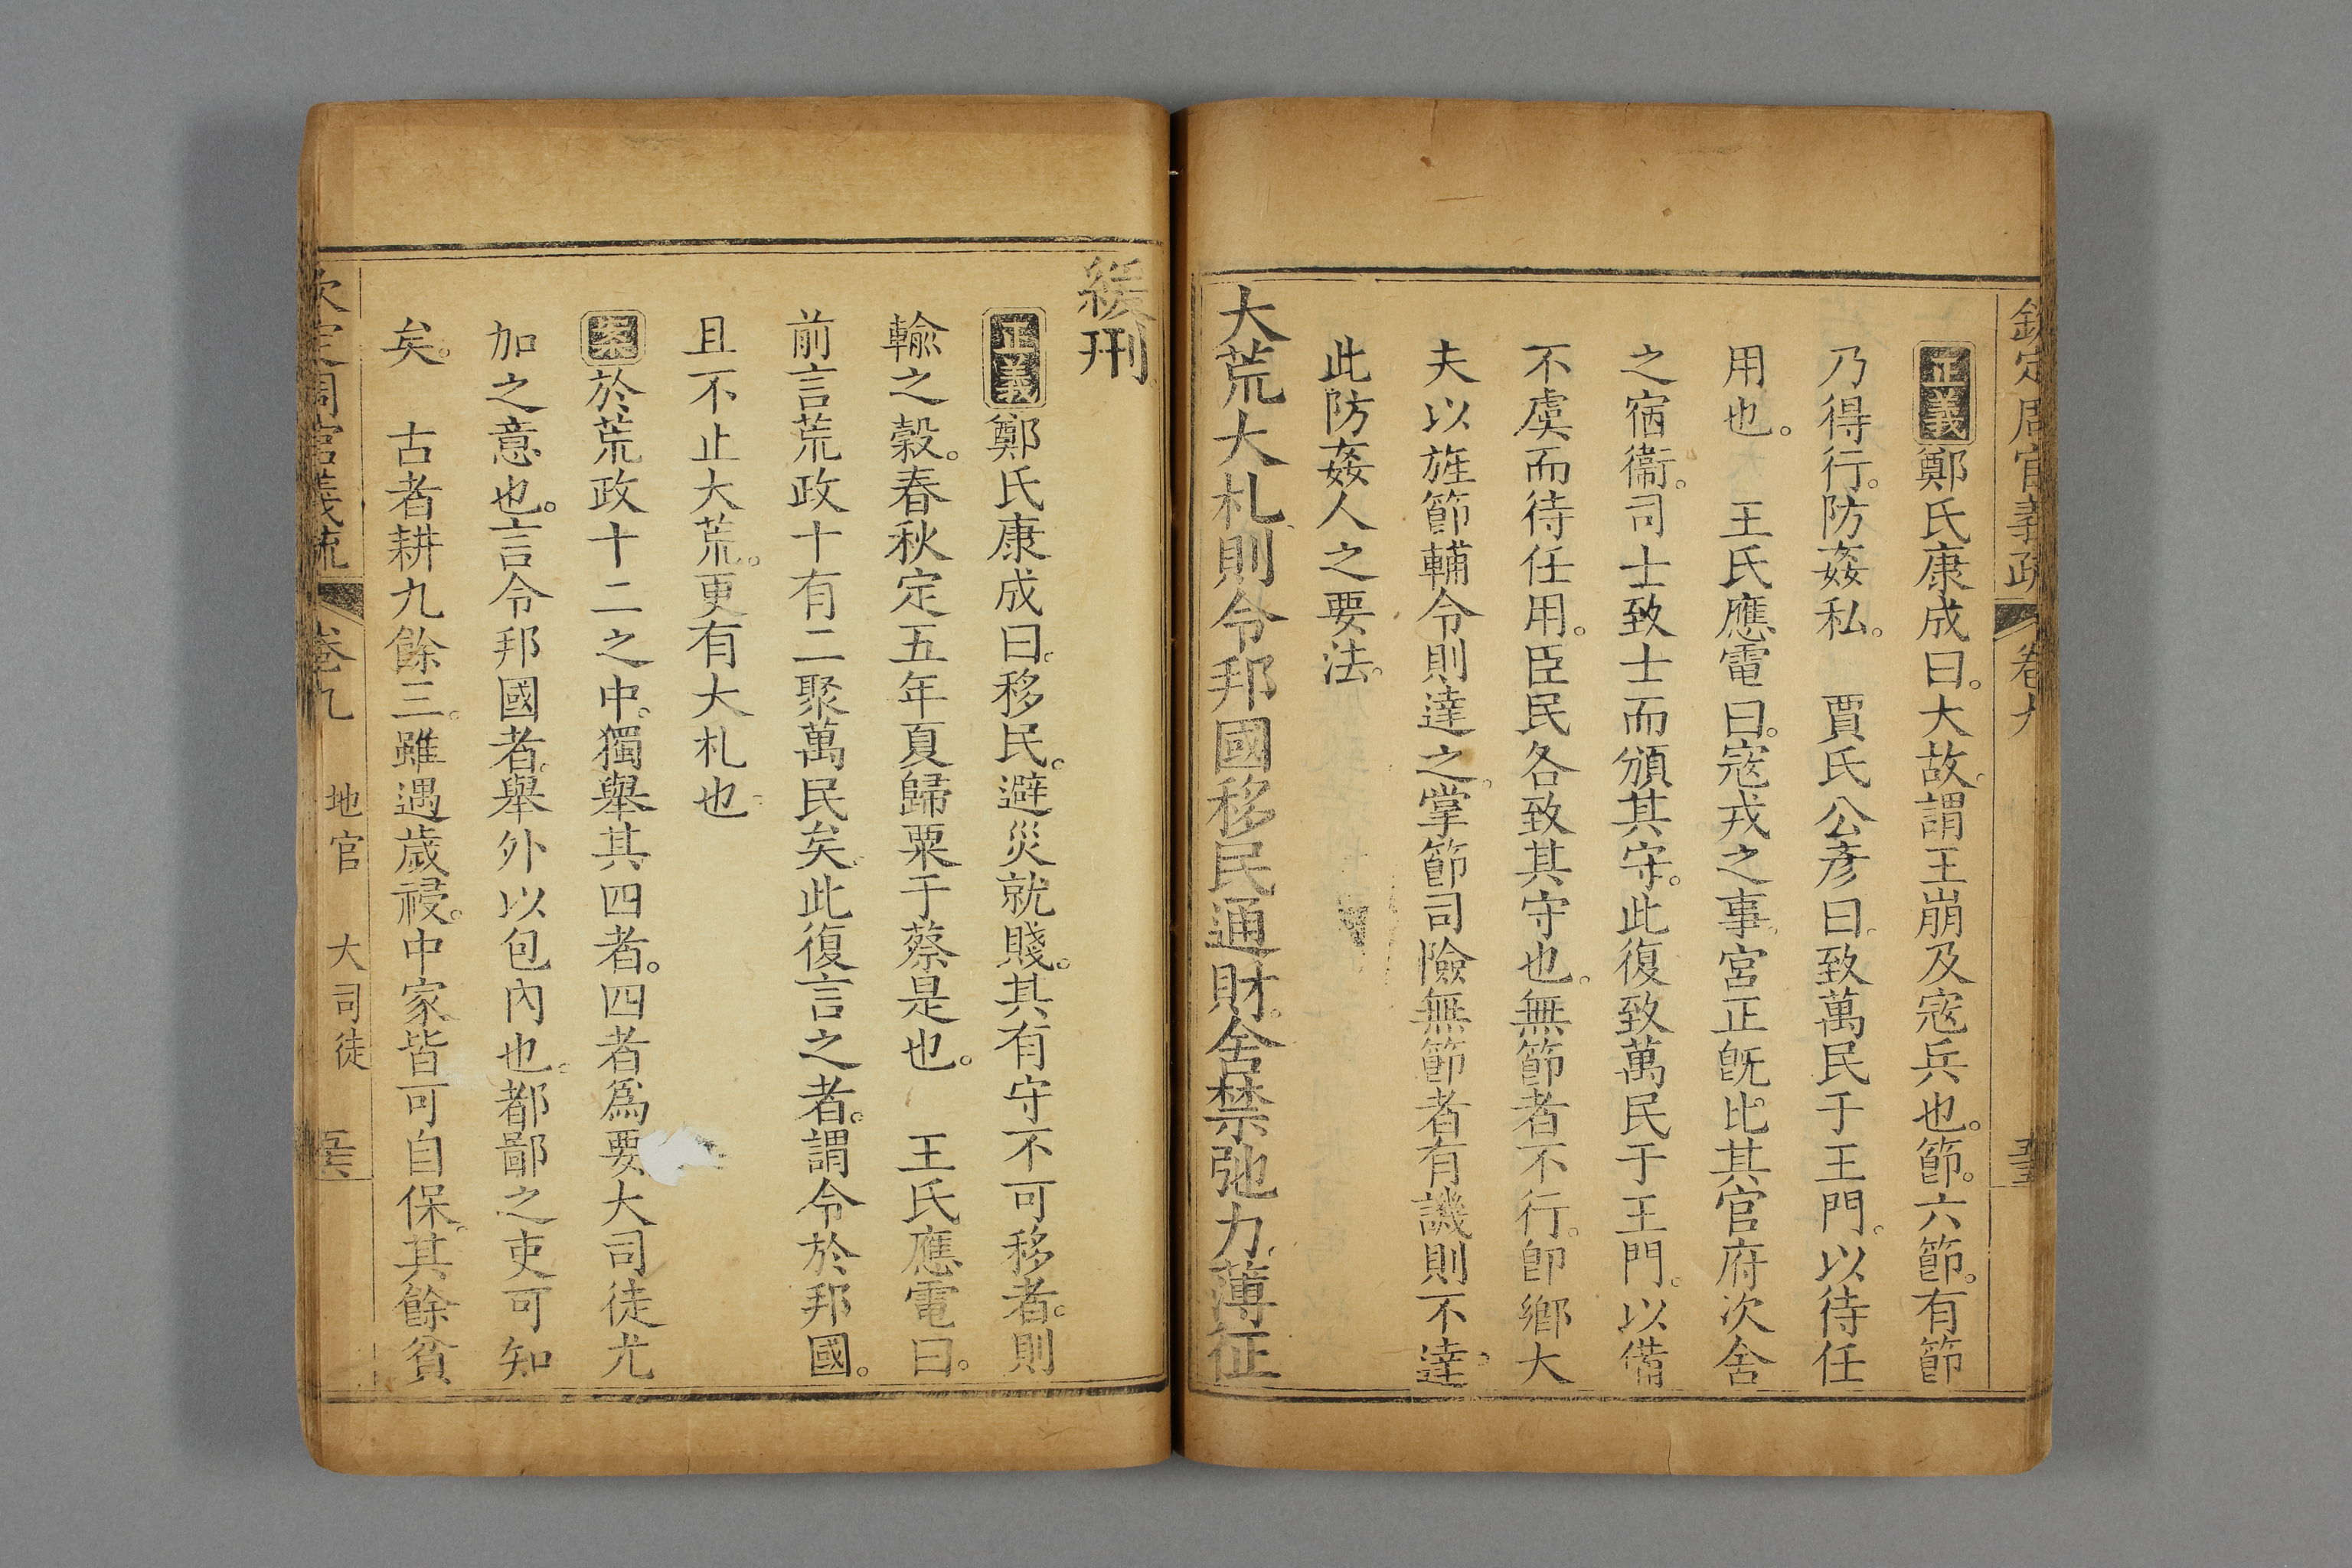 欽定周官義疏 卷九
正義鄭氏康成曰。大故。謂王崩及寇兵也。節。六節。有節
乃得行。防姦私。 賈氏公彥曰。致萬民于王門。以待任
用也。 王氏應電曰。寇戎之事。宮正旣比其官府次舍
之宿衞。司士致士而頒其守。此復致萬民于王門。以備
不虞而待任用。臣民各致其守也。無節者不行。卽鄉大
夫以旌節輔令則達之。掌節司險無節者有譏則不達。
此防姦人之要法。
大荒大札。則令邦國移民通財。舍禁弛力。薄征
緩刑
正義鄭氏康成曰。移民。避災就賤。其有守不可移者。則
輸之穀。春秋定五年夏歸粟于蔡是也。 王氏應電曰。
前言荒政十有二聚萬民矣。此復言之者。謂令於邦國。
且不止大荒。更有大札也。
案於荒政十二之中。獨舉其四者。四者爲要。大司徒尤
加之意也。言令邦國者。舉外以包內也。都鄙之吏可知
矣。 古者耕九餘三。雖遇歲祲。中家皆可自保。其餘貧
欽定周官義疏 卷九 地官 大司徒